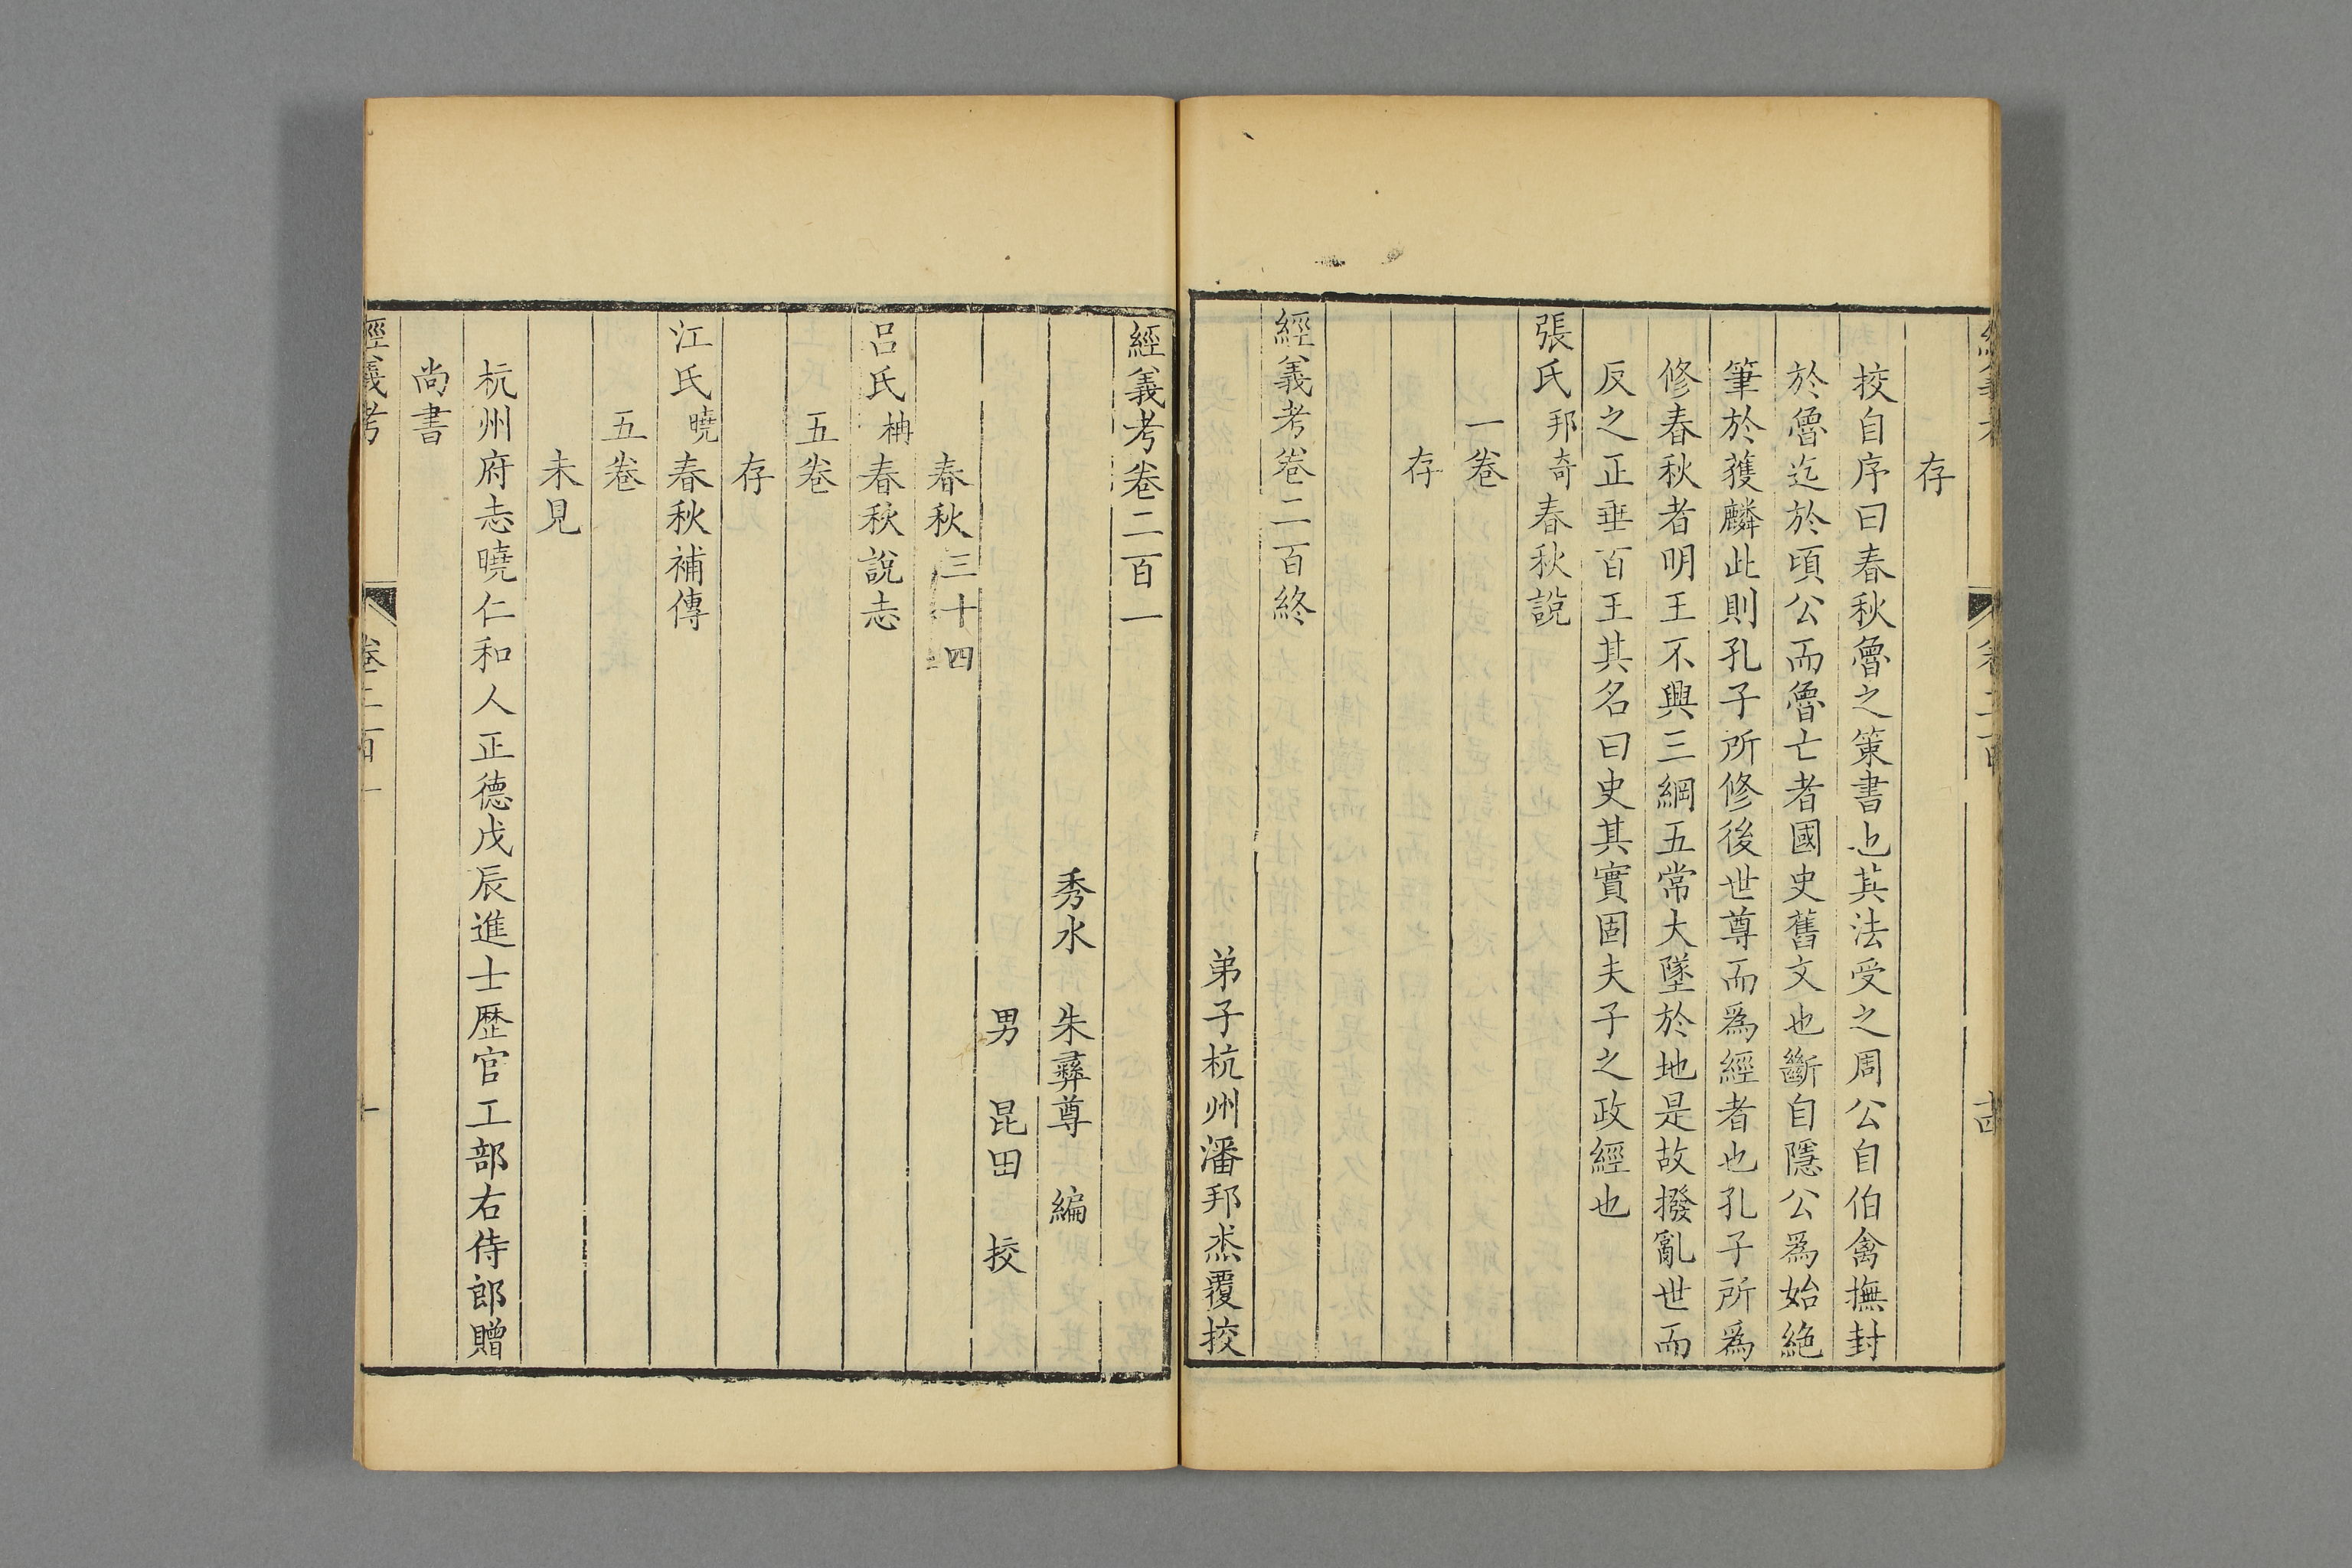 存
挍自序曰春秋魯之策書也其法受之周公自伯禽撫封
於魯迄於頃公而魯亡者國史舊文也斷自隱公爲始絶
筆於獲麟此則孔子所修後世尊而爲經者也孔子所爲
修春秋者明王不興三綱五常大墜於地是故撥亂世而
反之正垂百王其名曰史其實固夫子之政經也
張氏邦奇春秋說
一卷
存
經義考卷二百終
弟子杭州潘邦烝覆挍
經義考卷二百一
秀水 朱彝尊 編
男 昆田 挍
春秋三十四
呂氏柟春秋說志
五卷
存
江氏曉春秋補傳
五卷
未見
杭州府志曉仁和人正德戊辰進士歷官工部右侍郎贈
尚書
經義考 卷二百一 一